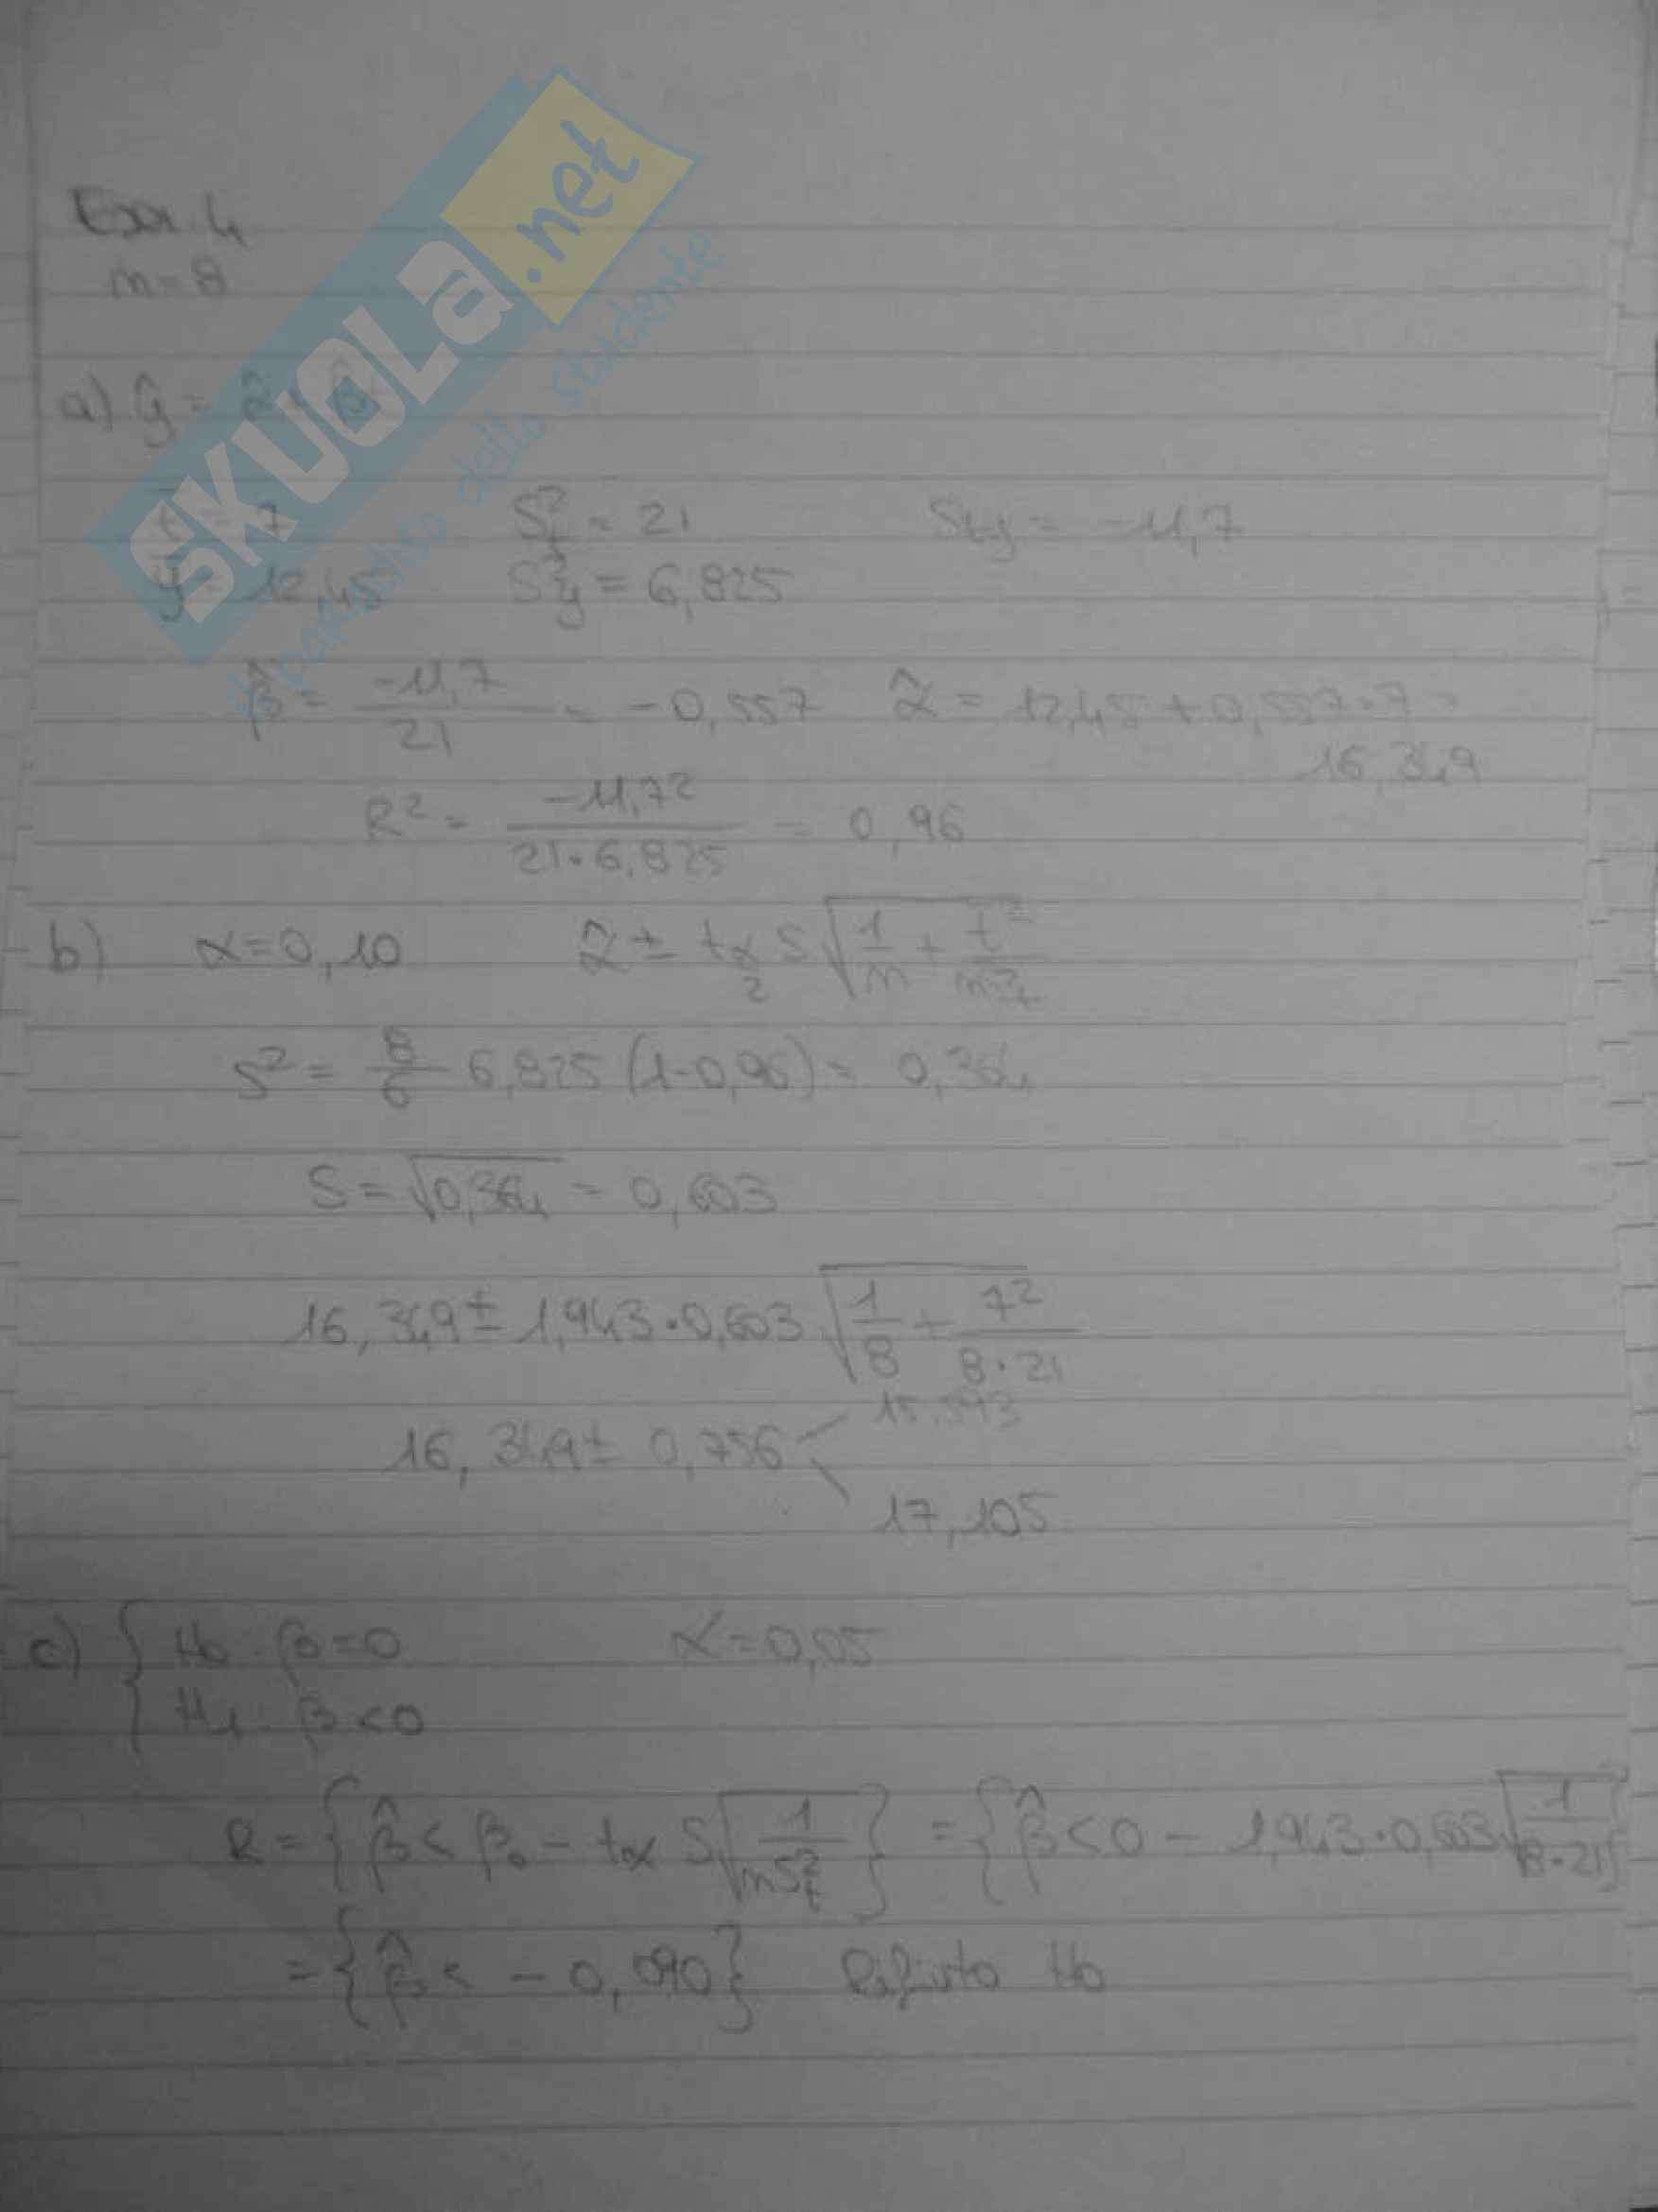 Eser. 4
n=8
a) ŷ = α̂ + β̂t
t̄ = 7 S²t = 21 Sty = -11,7
ȳ = 12,45 S²y = 6,825
β̂ = -11,7 / 21 = -0,557 α̂ = 12,45 + 0,557·7 =
16,349
R² = -11,7² / 21·6,825 = 0,96
b) α=0,10 α̂ ± tα/2 S √(1/n + t̄²/nS²t)
S² = 8/6 6,825 (1-0,96) = 0,364
S = √0,364 = 0,603
16,349 ± 1,943·0,603 √(1/8 + 7²/8·21)
16,349 ± 0,756 < 15,593
17,105
c) { H0: β=0 α=0,05
H1: β<0
R = {β̂ < β0 - tα S √(1/nS²t)} = {β̂ < 0 - 1,943·0,603 √(1/8·21)}
= {β̂ < -0,090} Rifiuto H0
SKUOLA.net
il paradiso dello studente